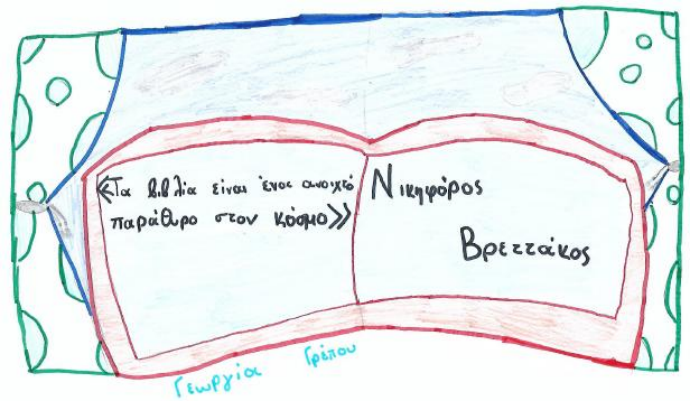 «Τα βιβλία είναι ένας ανοιχτό
παράθυρο στον κόσμο»
Νικηφόρος
Βρεττάκος
Γεωργία Γρέπου